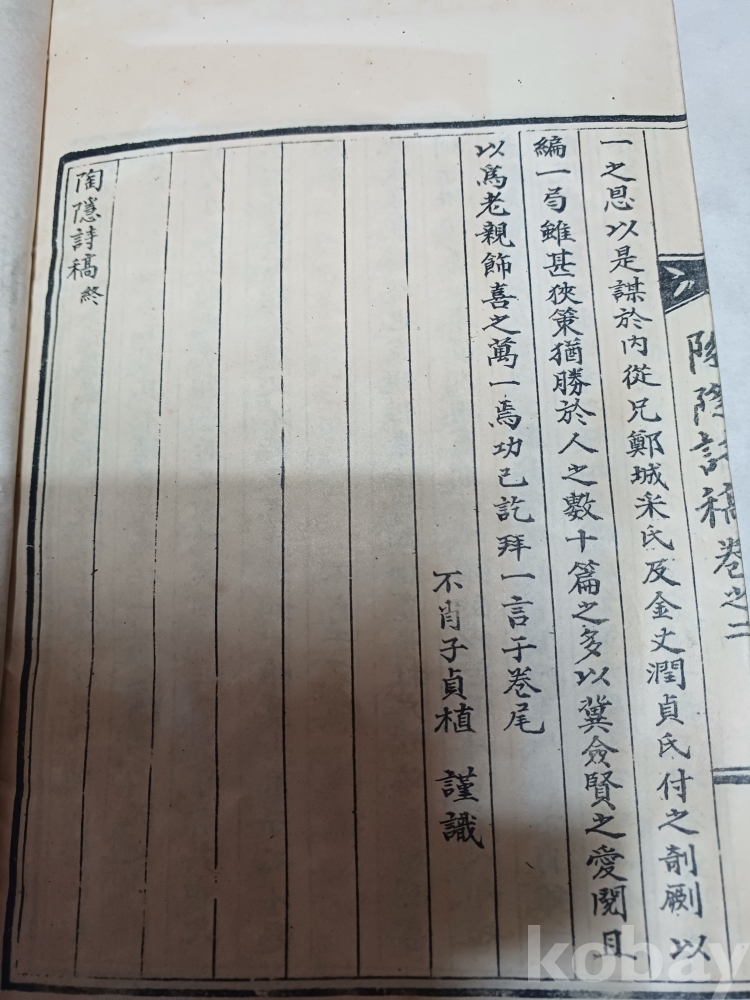 陶隱詩稿卷之二
一之恩以是謀於內從兄鄭城采氏及金丈潤貞氏付之剞劂以
編一局雖甚狹策猶勝於人之數十篇之多以冀僉賢之愛閱且
以爲老親飾喜之萬一焉功已訖拜一言于卷尾
不肖子貞植 謹識
陶隱詩稿終
kobay